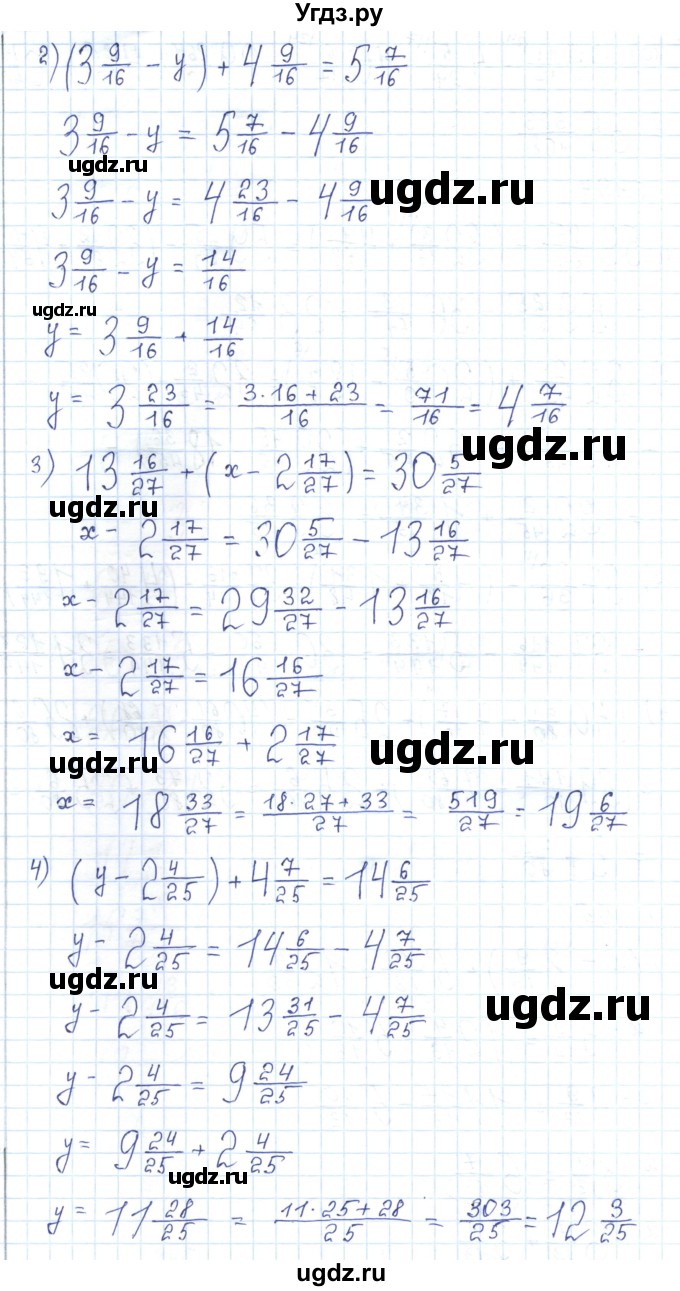 Угдз.ру
2) (3 9/16 - y) + 4 9/16 = 5 7/16
3 9/16 - y = 5 7/16 - 4 9/16
ugdz.ru
ugdz.ru
3 9/16 - y = 4 23/16 - 4 9/16
3 9/16 - y = 14/16
ugdz.ru
y = 3 9/16 + 14/16
y = 3 23/16 = (3·16 + 23)/16 = 71/16 = 4 7/16
ugdz.ru
3) 13 16/27 + (x - 2 17/27) = 30 5/27
ugdz.ru
x - 2 17/27 = 30 5/27 - 13 16/27
x - 2 17/27 = 29 32/27 - 13 16/27
x - 2 17/27 = 16 16/27
x = 16 16/27 + 2 17/27
ugdz.ru
ugdz.ru
x = 18 33/27 = (18·27 + 33)/27 = 519/27 = 19 6/27
4) (y - 2 4/25) + 4 7/25 = 14 6/25
y - 2 4/25 = 14 6/25 - 4 7/25
ugdz.ru
y - 2 4/25 = 13 31/25 - 4 7/25
ugdz.ru
y - 2 4/25 = 9 24/25
y = 9 24/25 + 2 4/25
ugdz.ru
y = 11 28/25 = (11·25 + 28)/25 = 303/25 = 12 3/25
ugdz.ru